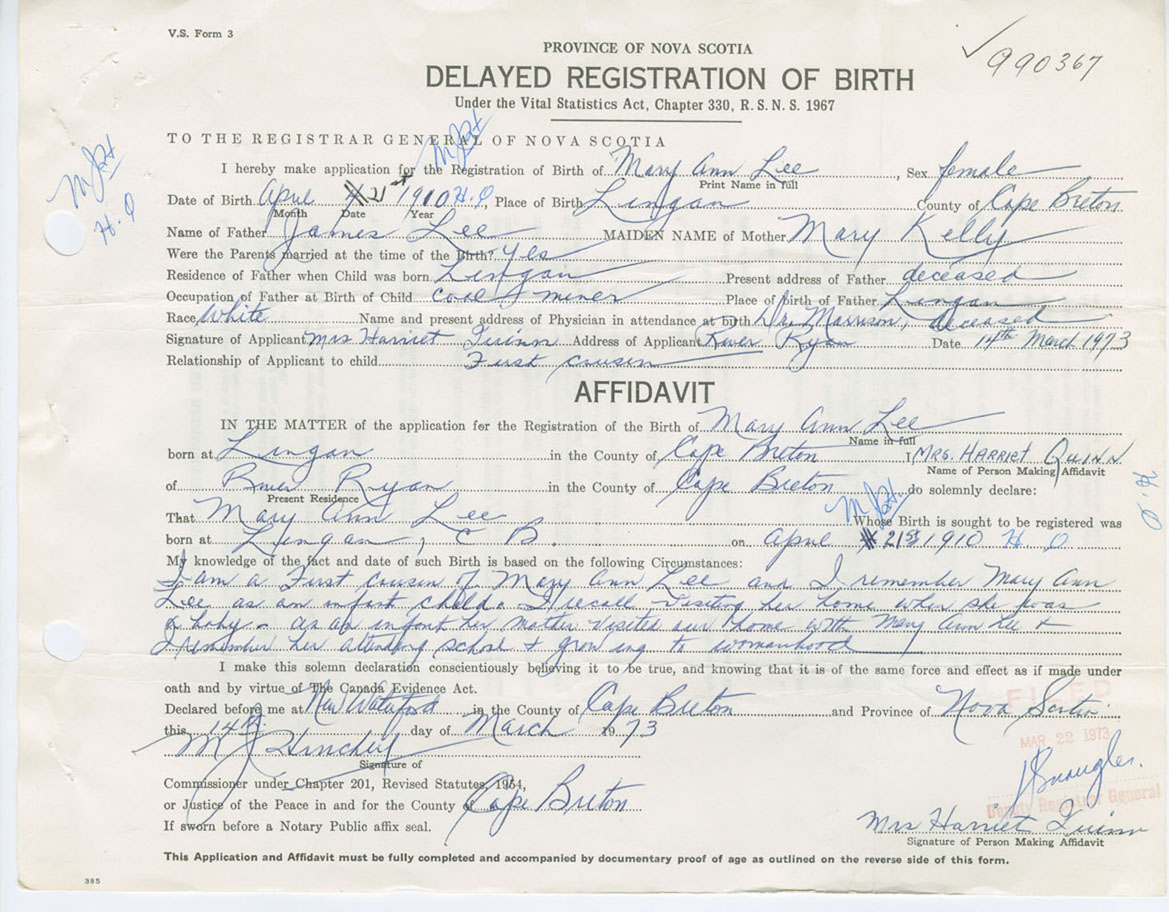 V.S. Form 3
990367
PROVINCE OF NOVA SCOTIA
DELAYED REGISTRATION OF BIRTH
Under the Vital Statistics Act, Chapter 330, R. S. N. S. 1967
TO THE REGISTRAR GENERAL OF NOVA SCOTIA
I hereby make application for the Registration of Birth of Mary Ann Lee, Sex female
Print Name in full
Date of Birth April 21st 1910 H. Q, Place of Birth Lingan County of Cape Breton
Month Date Year
Name of Father James Lee MAIDEN NAME of Mother Mary Kelly
Were the Parents married at the time of the Birth? Yes
Residence of Father when Child was born Lingan Present address of Father deceased
Occupation of Father at Birth of Child coal miner Place of Birth of Father Lingan
Race White Name and present address of Physician in attendance at birth Dr. Morrison, deceased
Signature of Applicant Mrs Harriet Quinn Address of Applicant River Ryan Date 14th March 1973
Relationship of Applicant to child First cousin
AFFIDAVIT
IN THE MATTER of the application for the Registration of the Birth of Mary Ann Lee
Name in full
born at Lingan in the County of Cape Breton I MRS. HARRIET QUINN
Name of Person Making Affidavit
of River Ryan in the County of Cape Breton do solemnly declare:
Present Residence
That Mary Ann Lee Whose Birth is sought to be registered was
born at Lingan, C B. on April 21st 1910 H. Q
My knowledge of the fact and date of such Birth is based on the following Circumstances:
I am a First cousin of Mary Ann Lee and I remember Mary Ann
Lee as an infant child. I recall visiting her home when she was
a baby - as an infant her mother visited our home with Mary Ann Lee &
I remember her attending school & growing to womanhood
I make this solemn declaration conscientiously believing it to be true, and knowing that it is of the same force and effect as if made under
oath and by virtue of The Canada Evidence Act.
Declared before me at New Waterford in the County of Cape Breton and Province of Nova Scotia
FILED
this 14th day of March 1973
MAR 22 1973
M J Hinchey
Signature of
Commissioner under Chapter 201, Revised Statutes, 1954,
or Justice of the Peace in and for the County of Cape Breton
Deputy Registrar General
If sworn before a Notary Public affix seal.
Mrs Harriet Quinn
Signature of Person Making Affidavit
This Application and Affidavit must be fully completed and accompanied by documentary proof of age as outlined on the reverse side of this form.
385